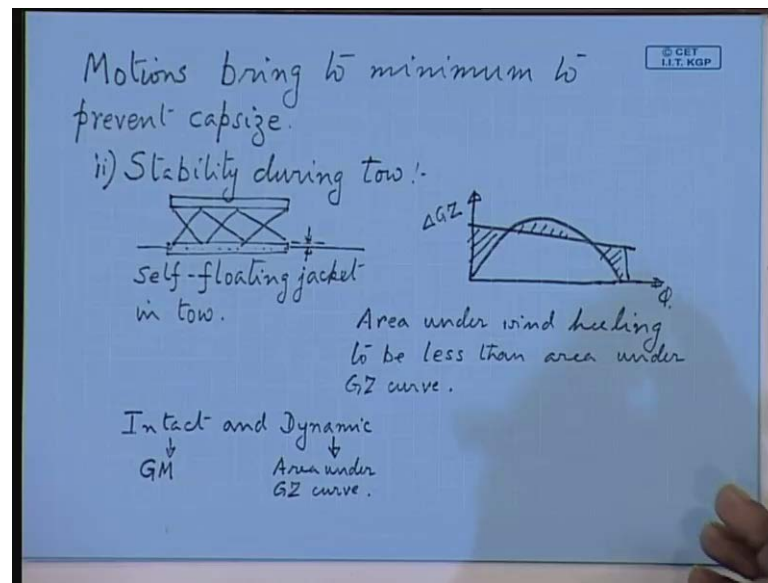 © CET
I.I.T. KGP
Motions bring to minimum to
prevent capsize.
ii) Stability during tow:-
ΔGZ
φ.
self-floating jacket
in tow.
Area under wind heeling
to be less than area under
GZ curve.
Intact and Dynamic
GM
Area under
GZ curve.